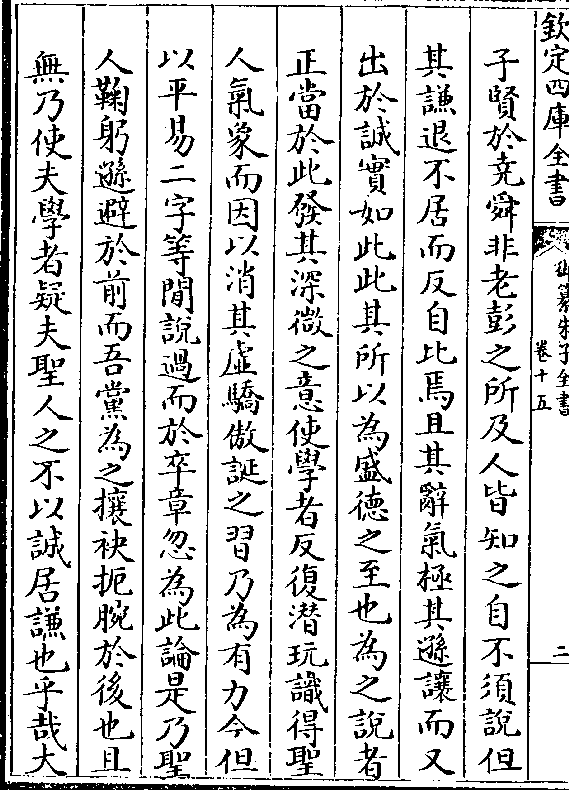 欽定四庫全書
御纂朱子全書
卷十五
二
子賢於堯舜非老彭之所及人皆知之自不須說但
其謙退不居而反自比焉且其辭氣極其遜讓而又
出於誠實如此此其所以為盛德之至也為之說者
正當於此發其深微之意使學者反復潛玩識得聖
人氣象而因以消其虛驕傲誕之習乃為有力今但
以平易二字等閒說過而於卒章忽為此論是乃聖
人鞠躬遜避於前而吾黨為之攘袂扼腕於後也且
無乃使夫學者疑夫聖人之不以誠居謙也乎哉大